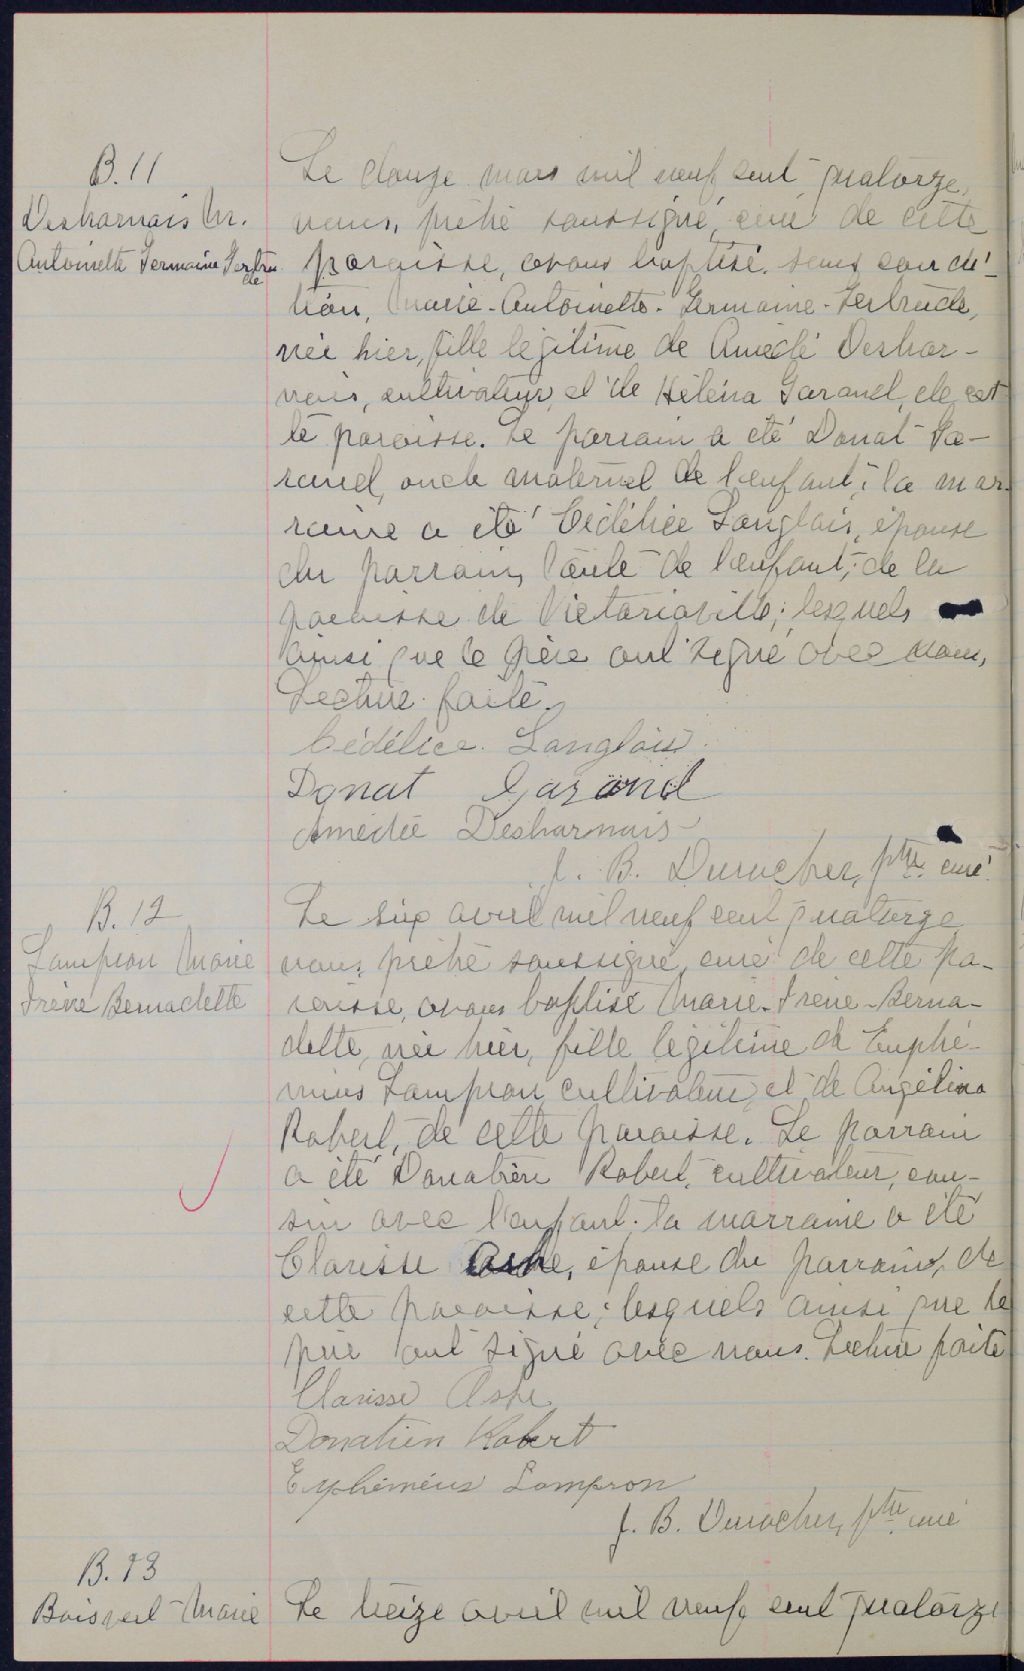 B. 11
Desharnais M.
Antoinette Germaine Gertru
de
Le douze mars mil neuf cent quatorze,
nous, prêtre soussigné, curé de cette
paroisse, avons baptisé, sous condi-
tion, Marie-Antoinette-Germaine-Gertrude,
née hier, fille légitime de Amédé Deshar-
nais, cultivateur, et de Héléna Garand, de cet
te paroisse. Le parrain a été Donat Ga-
rand, oncle maternel de l'enfant; la mar-
raine a été Cédélice Langlais, épouse
du parrain, tante de l'enfant, de la
paroisse de Victoriaville; lesquels
ainsi que le père ont signé avec nous,
Lecture faite.
Cédélice Langlois
Donat Garand
Amédée Desharnais
J. B. Durocher, ptre curé
B. 12
Lampron Marie
Irène Bernadette
Le six avril mil neuf cent quatorze
nous, prêtre soussigné, curé de cette pa-
roisse, avons baptisé Marie-Irène-Berna-
dette, née hier, fille légitime de Euphé-
mius Lampron, cultivateur, et de Angélina
Robert, de cette paroisse. Le parrain
a été Donatien Robert, cultivateur, cou-
sin avec l'enfant; la marraine a été
Clarisse Ashe, épouse du parrain, de
cette paroisse; lesquels ainsi que le
père ont signé avec nous. Lecture faite
Clarisse Ashe
Donatien Robert
Euphémius Lampron
J. B. Durocher, ptre curé
B. 13
Boisvert Marie
Le treize avril mil neuf cent quatorze